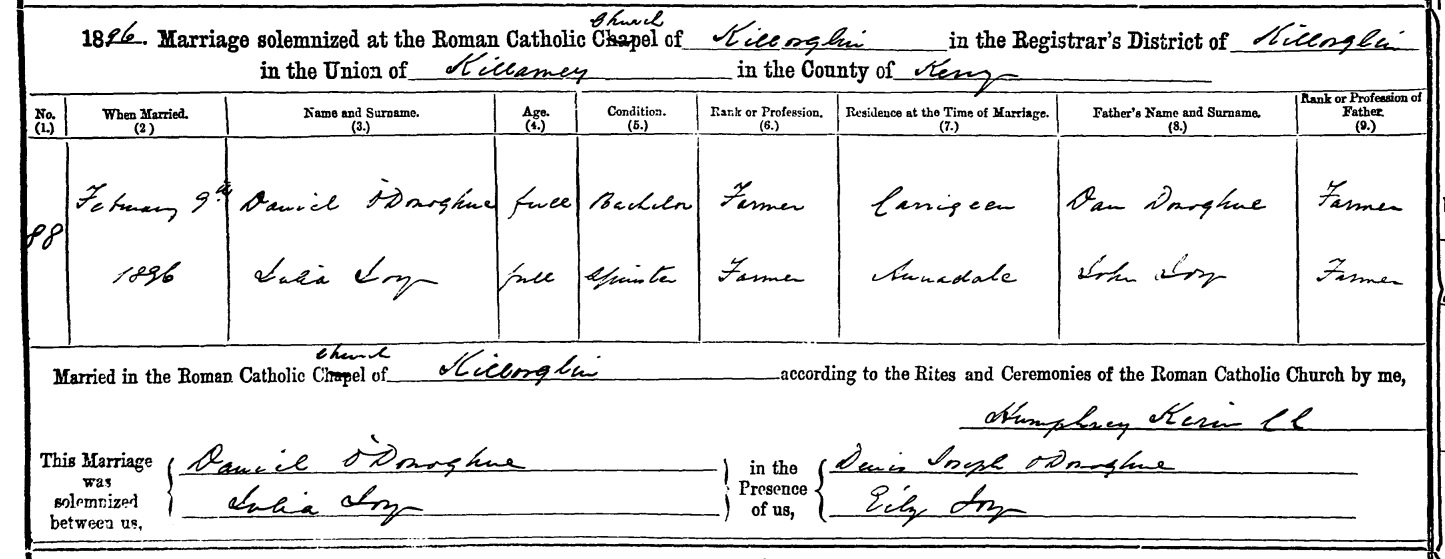 Church
1896. Marriage solemnized at the Roman Catholic Chapel of Killorglin in the Registrar's District of Killorglin
in the Union of Killarney in the County of Kerry
No. When Married. Name and Surname. Age. Condition. Rank or Profession. Residence at the Time of Marriage. Father's Name and Surname. Rank or Profession of Father.
(1.) (2) (3.) (4.) (5.) (6.) (7.) (8.) (9.)
February 9th Daniel O'Donoghue full Bachelor Farmer Carrigeen Dan Donoghue Farmer
88
1896 Julia Joy full Spinster Farmer Annadale John Joy Farmer
Church
Married in the Roman Catholic Chapel of Killorglin according to the Rites and Ceremonies of the Roman Catholic Church by me,
Humphrey Kerin CC
This Marriage was solemnized between us,
Daniel O'Donoghue
Julia Joy
in the Presence of us,
Denis Joseph O'Donoghue
Eily Joy